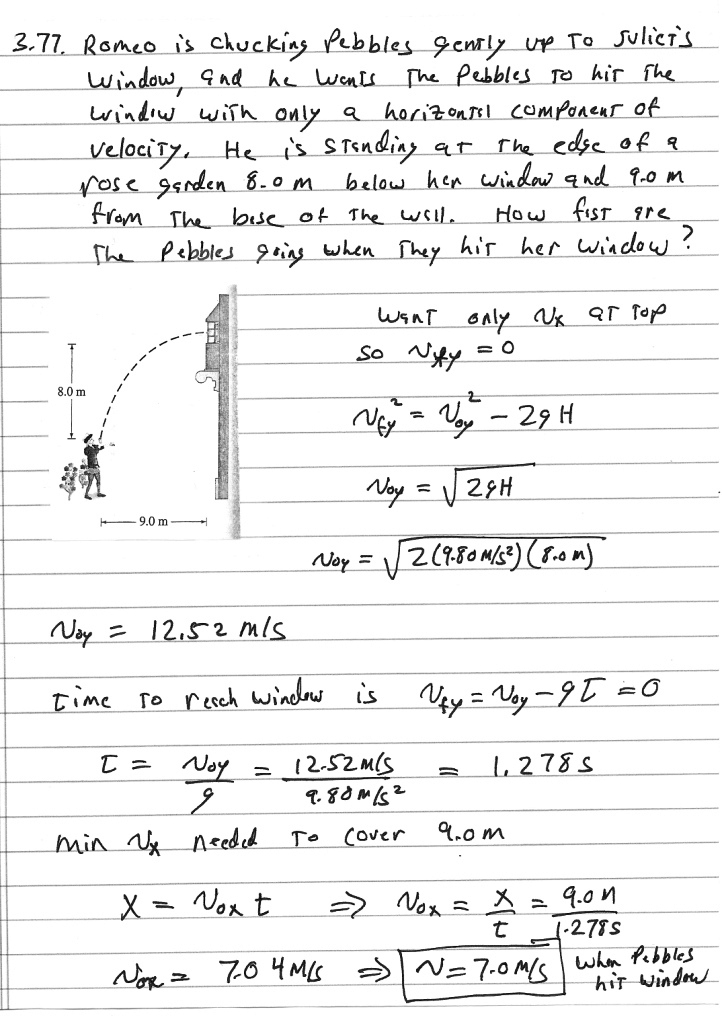 3.77. Romeo is chucking Pebbles gently up to Juliet's
window, and he wants the Pebbles to hit the
window with only a horizontal component of
velocity. He is standing at the edge of a
rose garden 8.0 m below her window and 9.0 m
from the base of the wall. How fast are
the Pebbles going when they hit her window?
want only Vx at top
so Vfy = 0
8.0 m
Vfy² = Voy² - 2gH
Voy = √2gH
9.0 m
Voy = √2(9.80 m/s²)(8.0 m)
Voy = 12.52 m/s
time to reach window is Vfy = Voy - gt = 0
t = Voy/g = 12.52 m/s / 9.80 m/s² = 1.278 s
min Vx needed to cover 9.0 m
X = Vox t ⇒ Vox = X/t = 9.0 m / 1.278 s
Vox = 7.04 m/s ⇒ V = 7.0 m/s when Pebbles
hit window